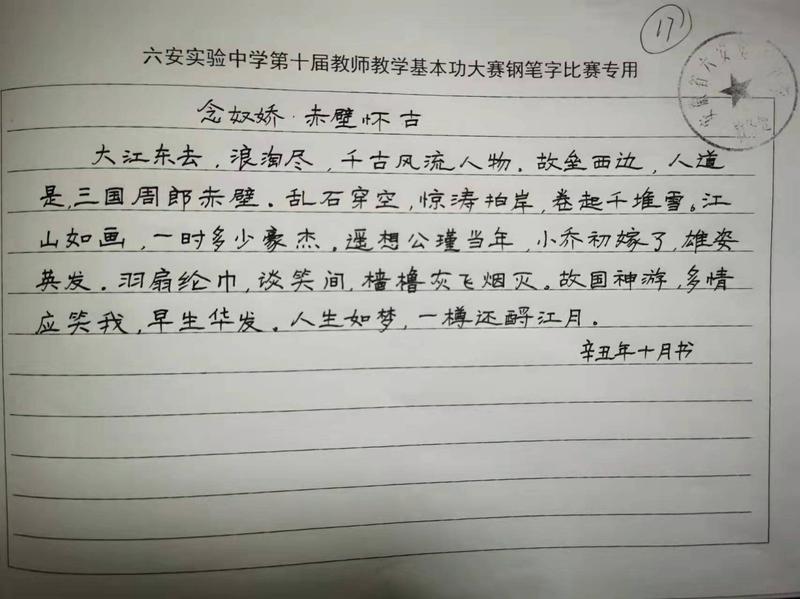 17
六安实验中学第十届教师教学基本功大赛钢笔字比赛专用
念奴娇·赤壁怀古
大江东去，浪淘尽，千古风流人物。故垒西边，人道
是，三国周郎赤壁。乱石穿空，惊涛拍岸，卷起千堆雪。江
山如画，一时多少豪杰。遥想公瑾当年，小乔初嫁了，雄姿
英发。羽扇纶巾，谈笑间，樯橹灰飞烟灭。故国神游，多情
应笑我，早生华发。人生如梦，一樽还酹江月。
辛丑年十月书